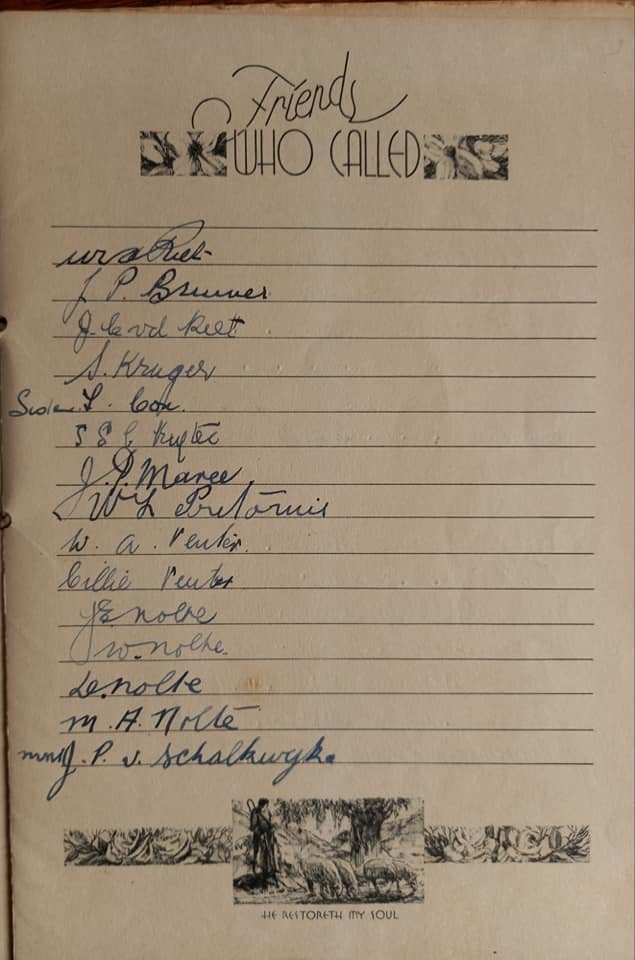 Friends
WHO CALLED
J P. Brunner
J. C vd Reet
S. Kruger
L. Cox.
S S C
J. P. Maree
W L Pretorius
W. A. Venter.
Cillie Venter
J E Nolte
J W. Nolte.
D. Nolte
M. A. Nolte
J. P. v. Schalkwyk
HE RESTORETH MY SOUL